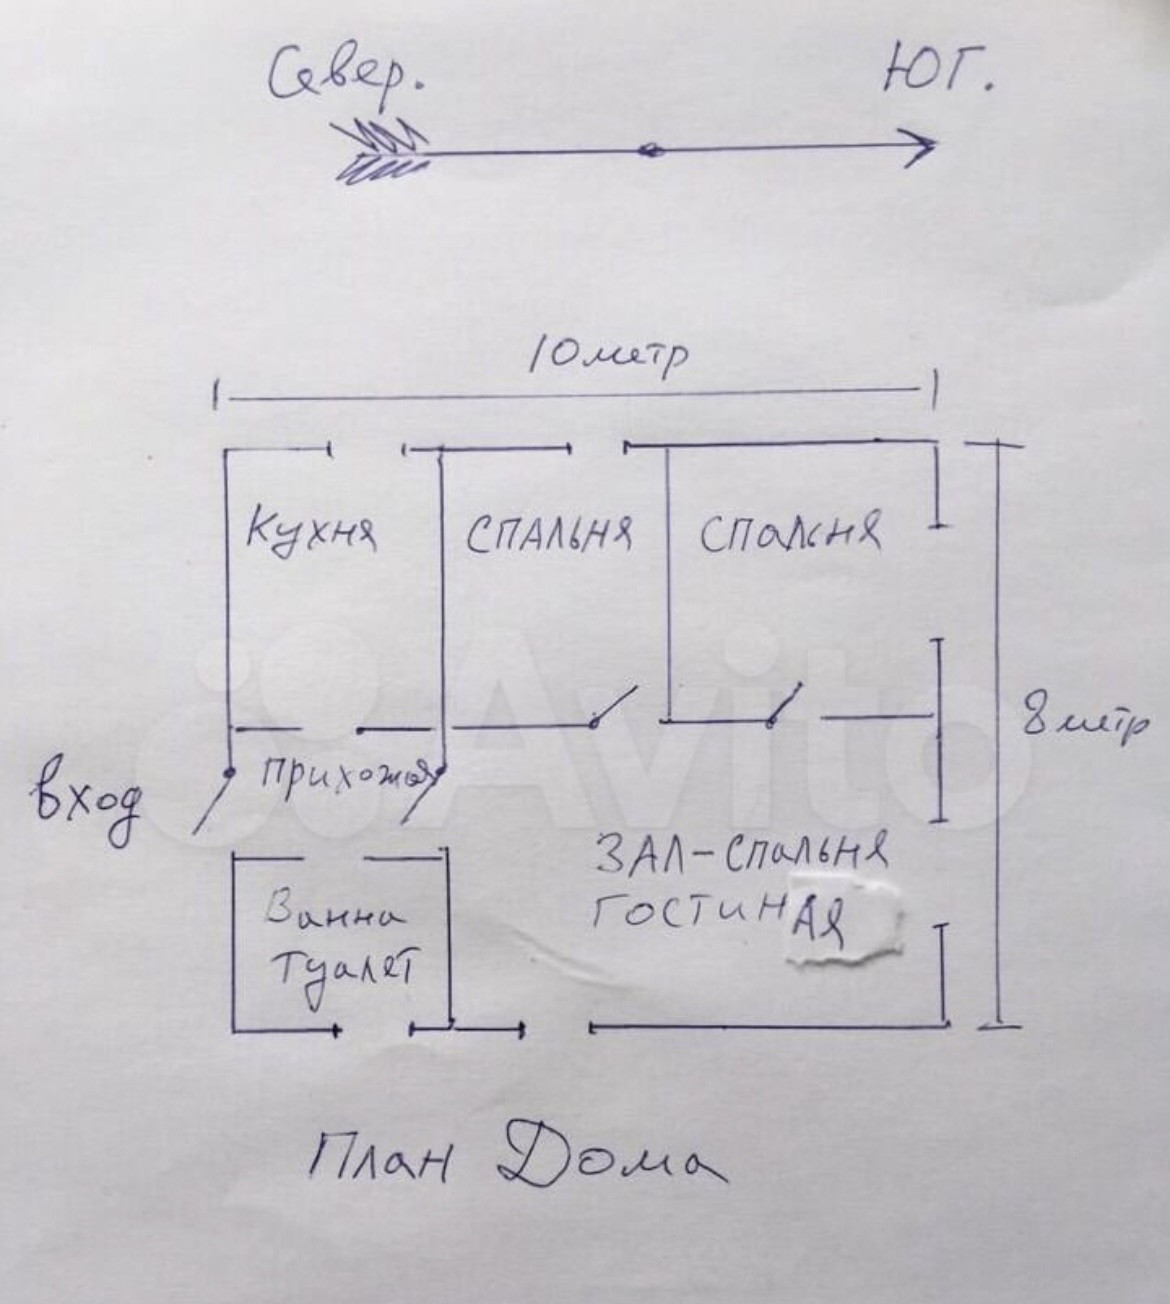 Север. ЮГ.
10 метр
Кухня СПАЛЬНЯ Спальня
8 метр
Вход Прихожая
ЗАЛ-Спальня
ГОСТИНАЯ
Ванна
Туалет
План Дома
Avito